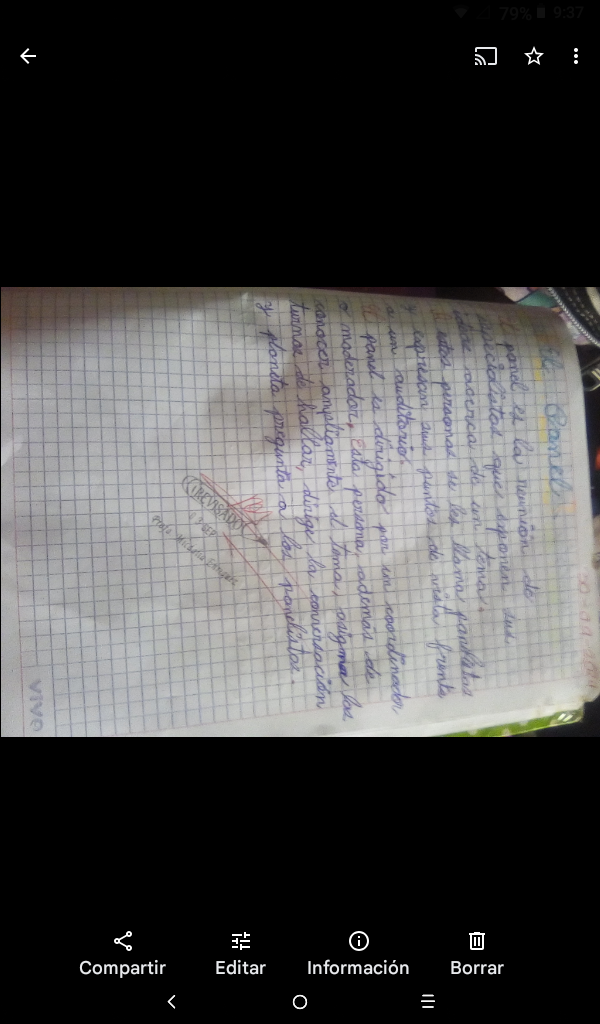 79% 9:37
El Panel.
El panel es la reunión de
especialistas que exponen sus
ideas acerca de un tema.
A estas personas se les llama panelistas
y expresan sus puntos de vista frente
a un auditorio.
El panel es dirigido por un coordinador
o moderador. Esta persona, además de
conocer ampliamente el tema, asigna los
turnos de hablar, dirige la conversación
y plantea pregunta a los panelistas.
REVISADO
VIVO
Compartir
Editar
Información
Borrar